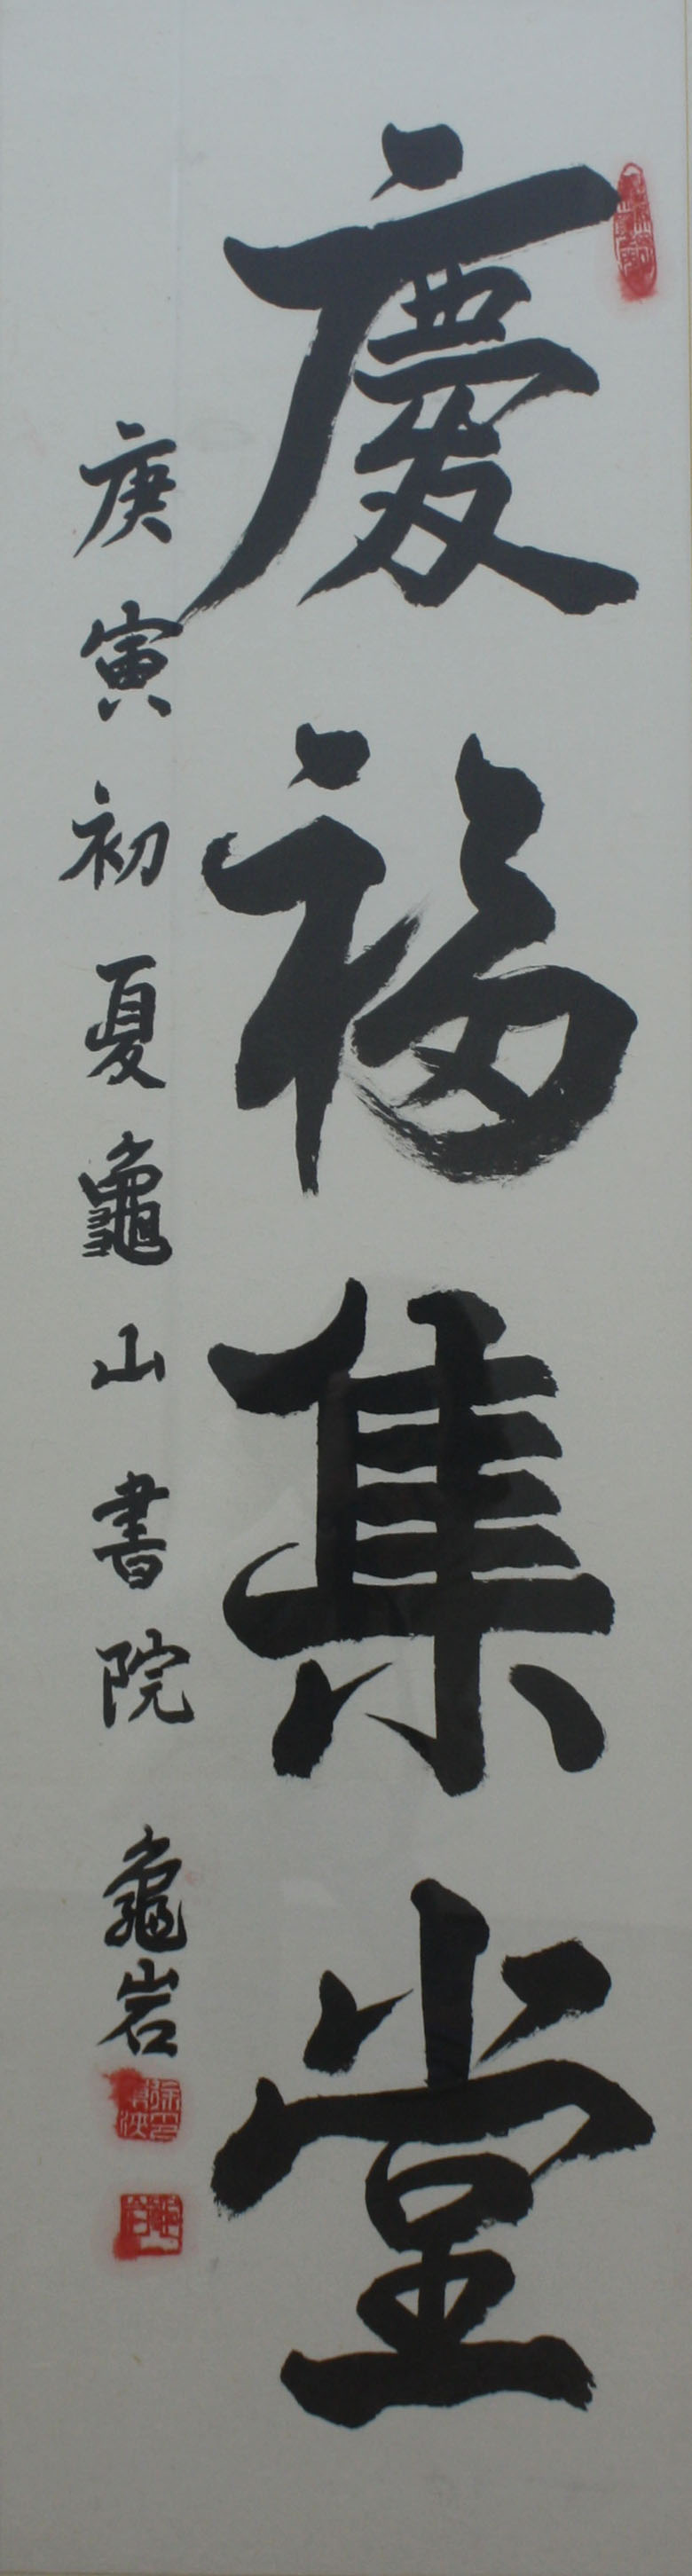 慶福集堂
庚寅初夏龜山書院 龜岩